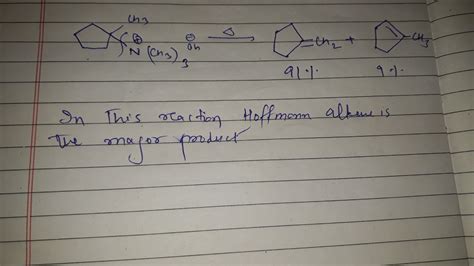 CH3
N (CH3)3 ⊕ ⊖ OH Δ =CH2 + CH3
91% 9%
In This reaction Hoffmann alkene is
the major product